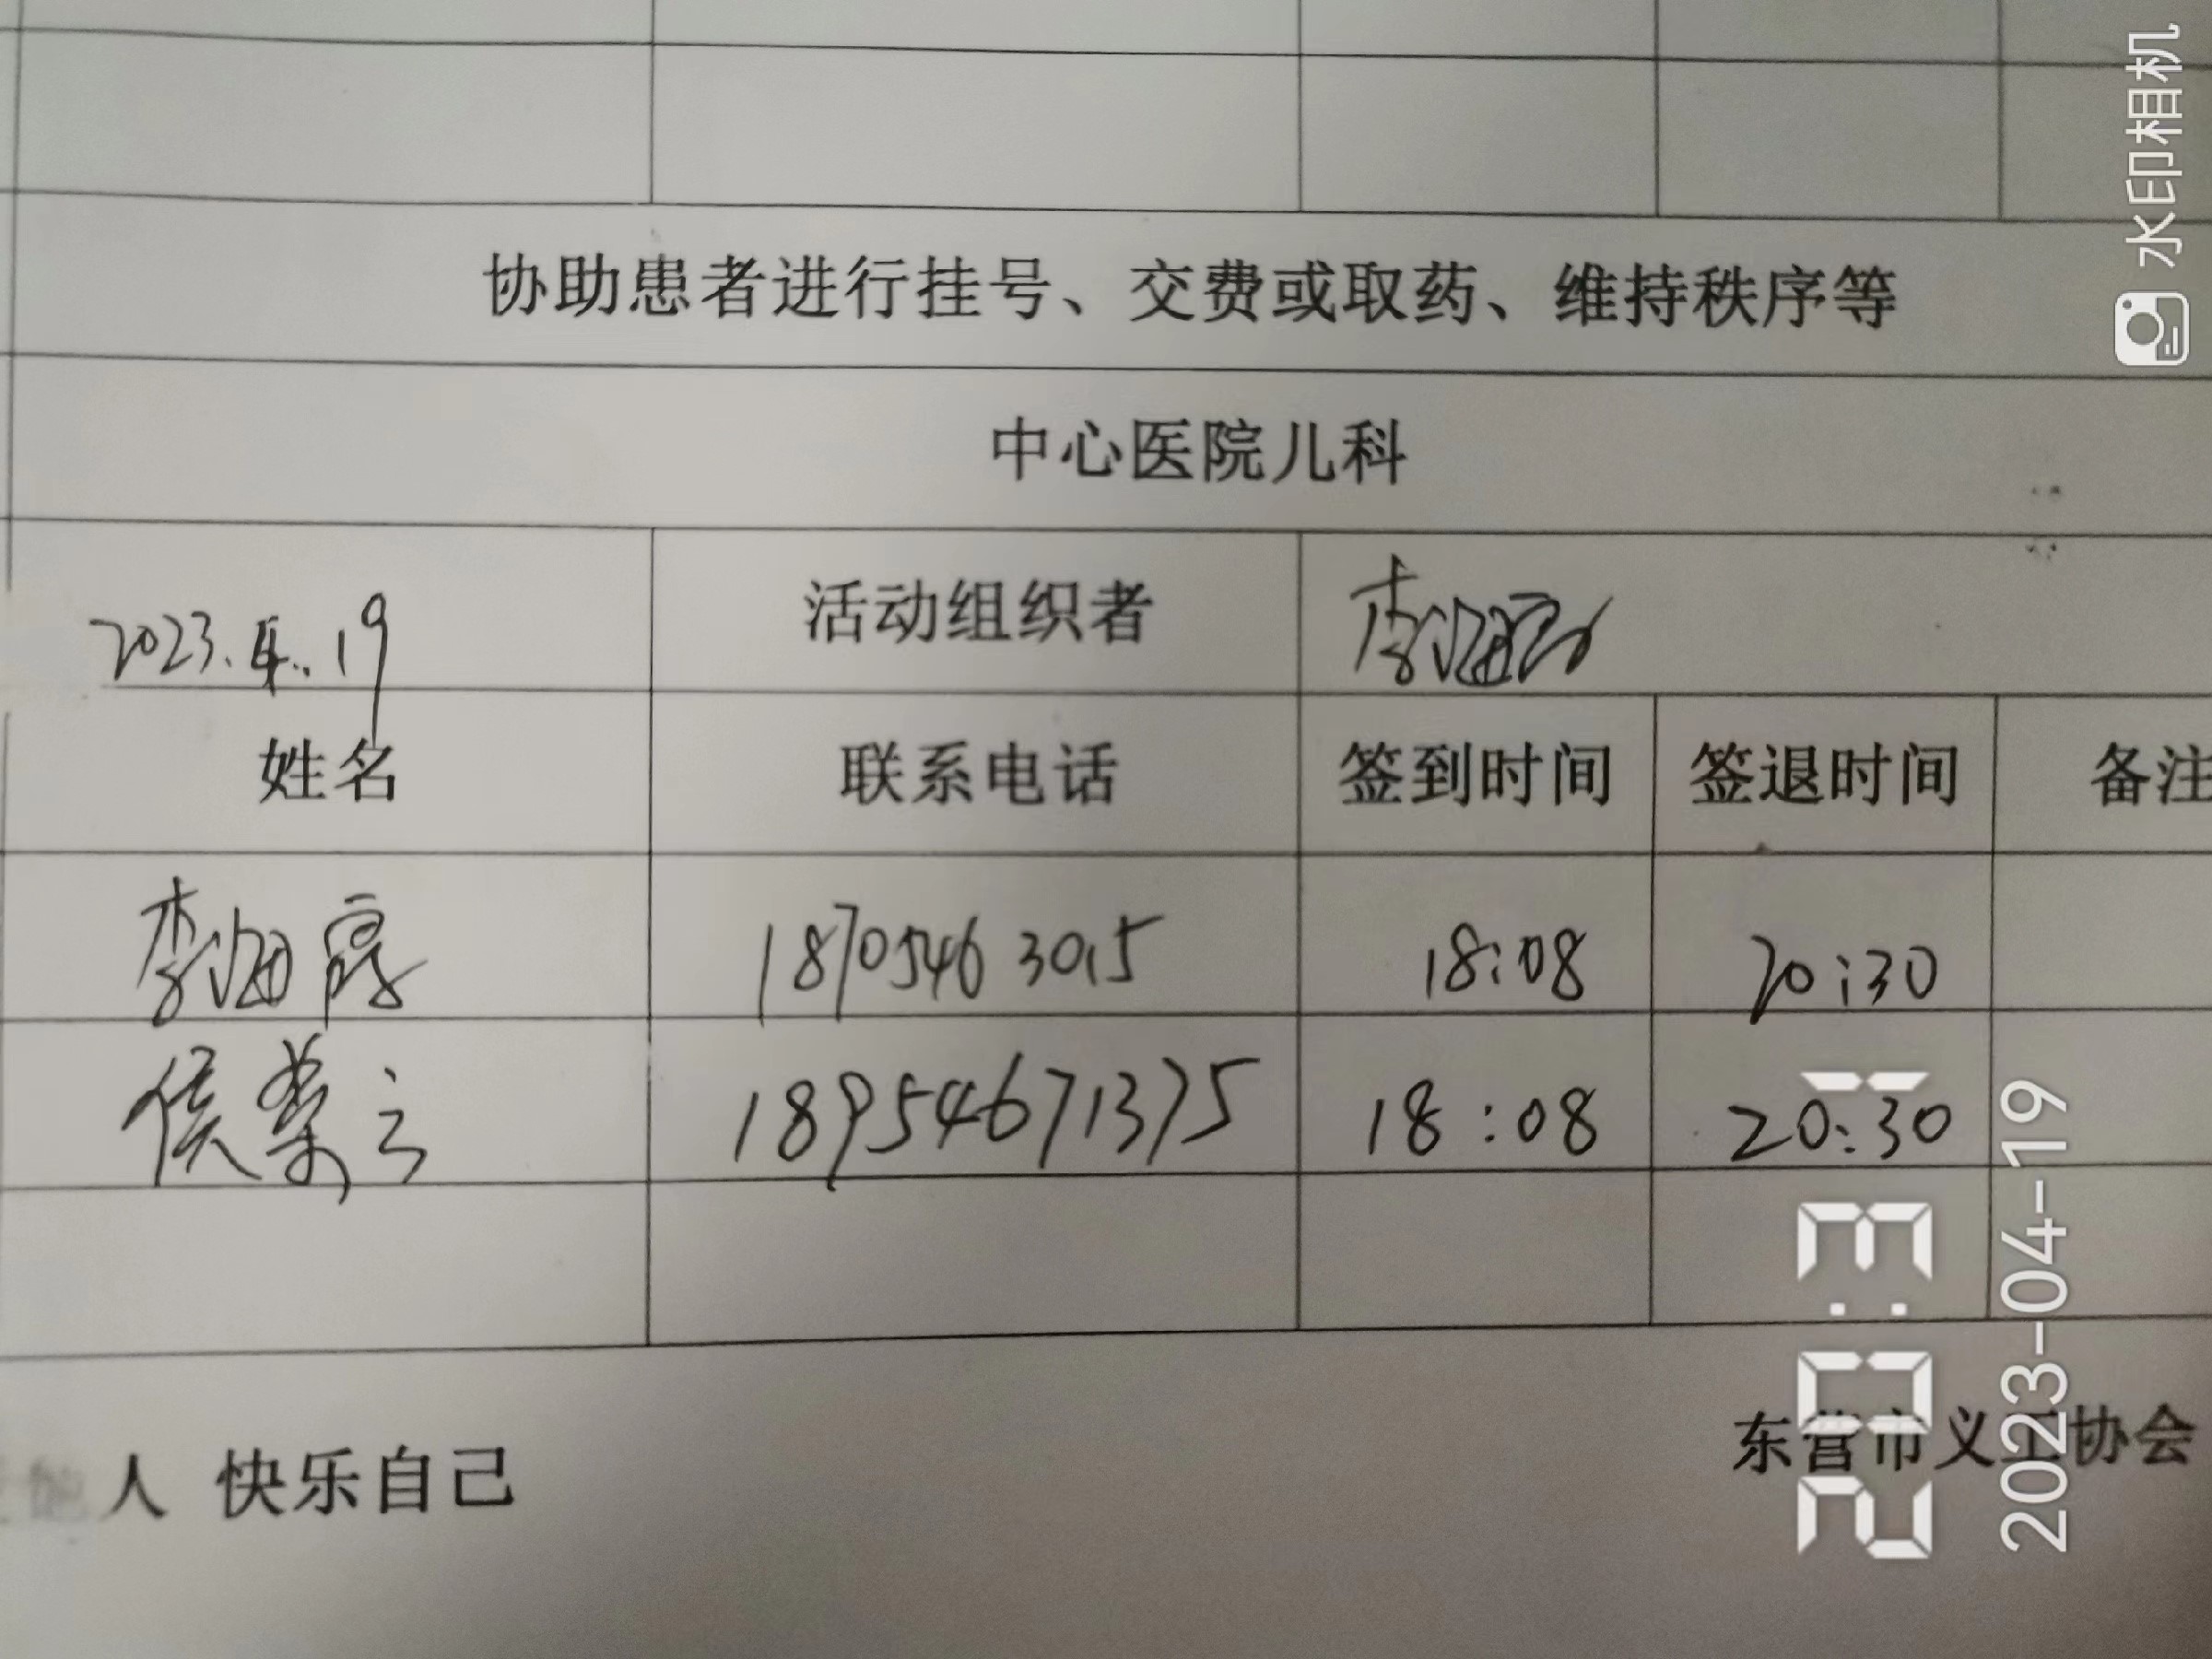 协助患者进行挂号、交费或取药、维持秩序等
中心医院儿科
2023.4.19 活动组织者 李海霞
姓名 联系电话 签到时间 签退时间 备注
李海霞 18705463015 18:08 20:30
侯荣云 18954671375 18:08 20:30
人 快乐自己
东营市义工协会
水印相机
2023-04-19